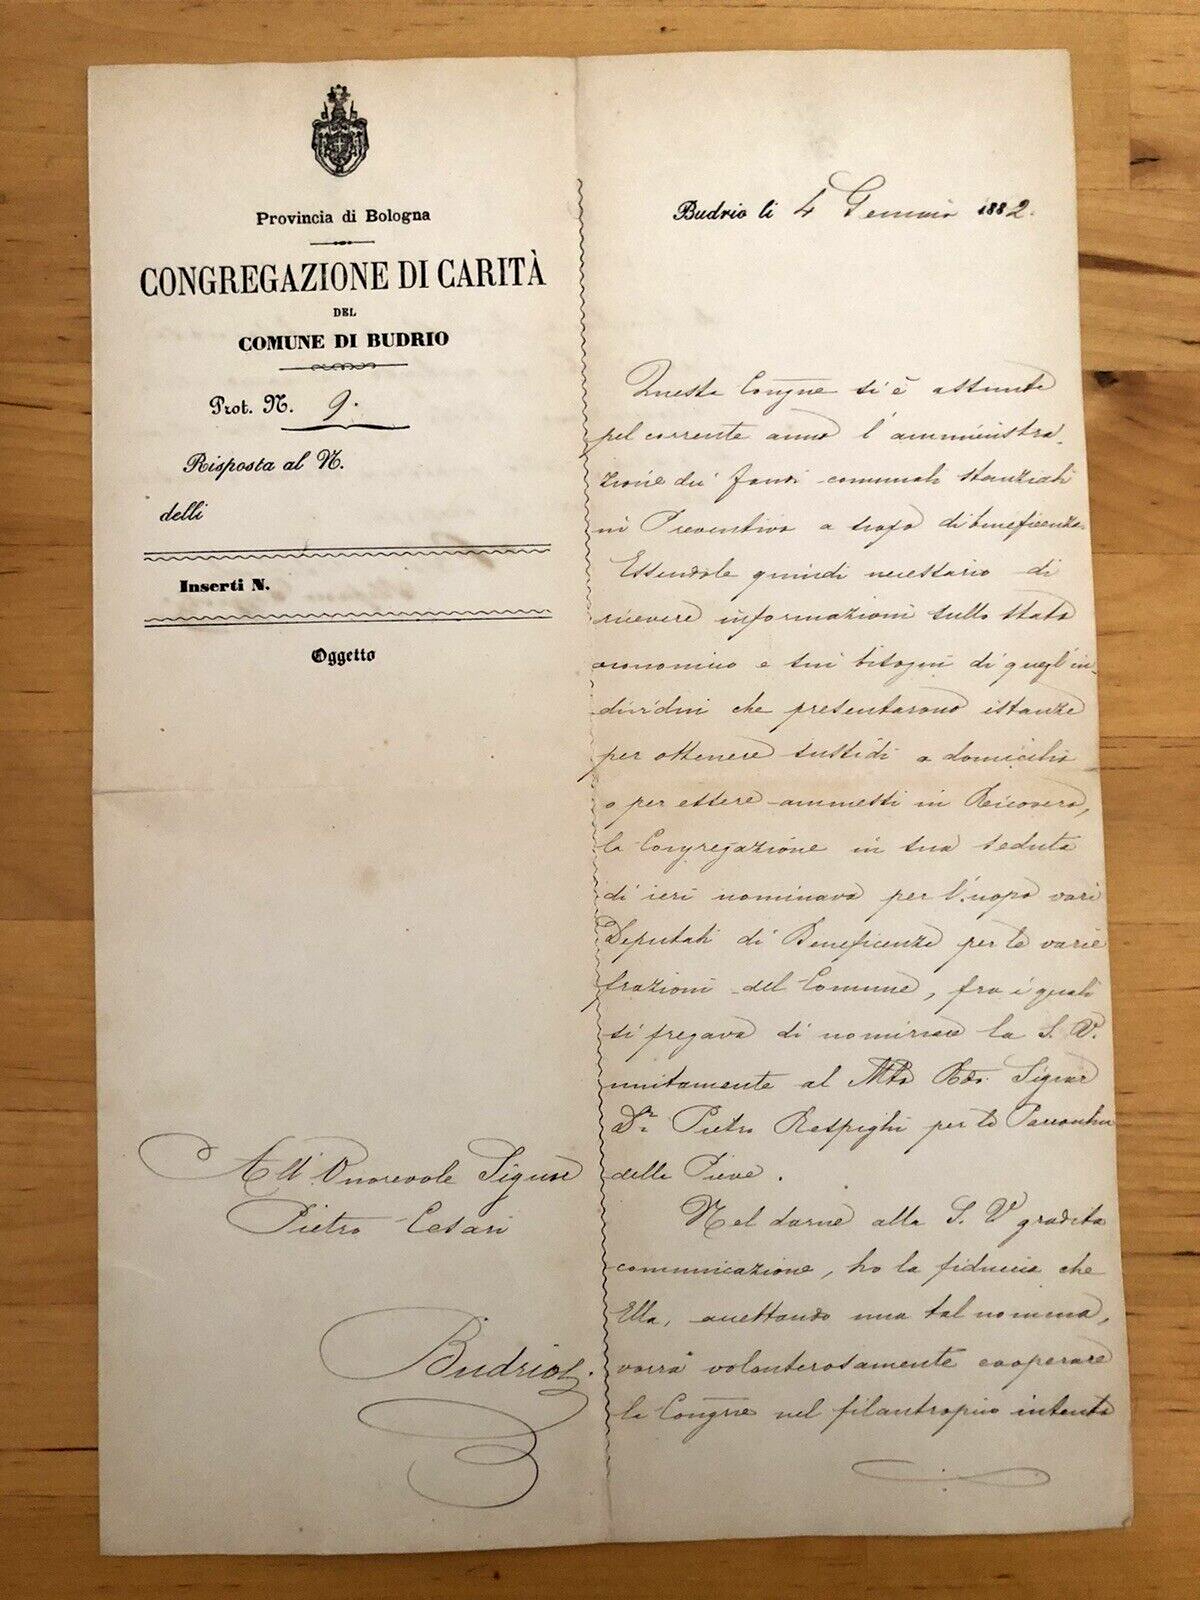 Provincia di Bologna
CONGREGAZIONE DI CARITÀ
DEL
COMUNE DI BUDRIO
Prot. N. 9.
Risposta al N.
delli
Inserti N.
Oggetto
All'Onorevole Signor
Pietro Cesari
Budrio
Budrio li 4 Gennaio 1882.
Questa Congne si è assunta
pel corrente anno l'amministra-
zione dei fondi comunali stanziati
in Preventivo a scopo di beneficenza.
Essendole quindi necessario di
ricevere informazioni sullo stato
economico e sui bisogni di quegl'in-
dividui che presentarono istanze
per ottenere sussidi a domicilio
o per essere ammessi in Ricovero,
la Congregazione in sua seduta
di ieri nominava per l'uopo vari
Deputati di Beneficenza per le varie
frazioni del Comune, fra i quali
si pregiava di nominare la S. V.
unitamente al Mto Rdo Signor
Dr. Pietro Respighi per la Parrocchia
della Pieve.
Nel darne alla S. V gradita
comunicazione, ho la fiducia che
Ella, accettando una tal nomina,
vorrà volonterosamente cooperare
la Congne nel filantropico intento